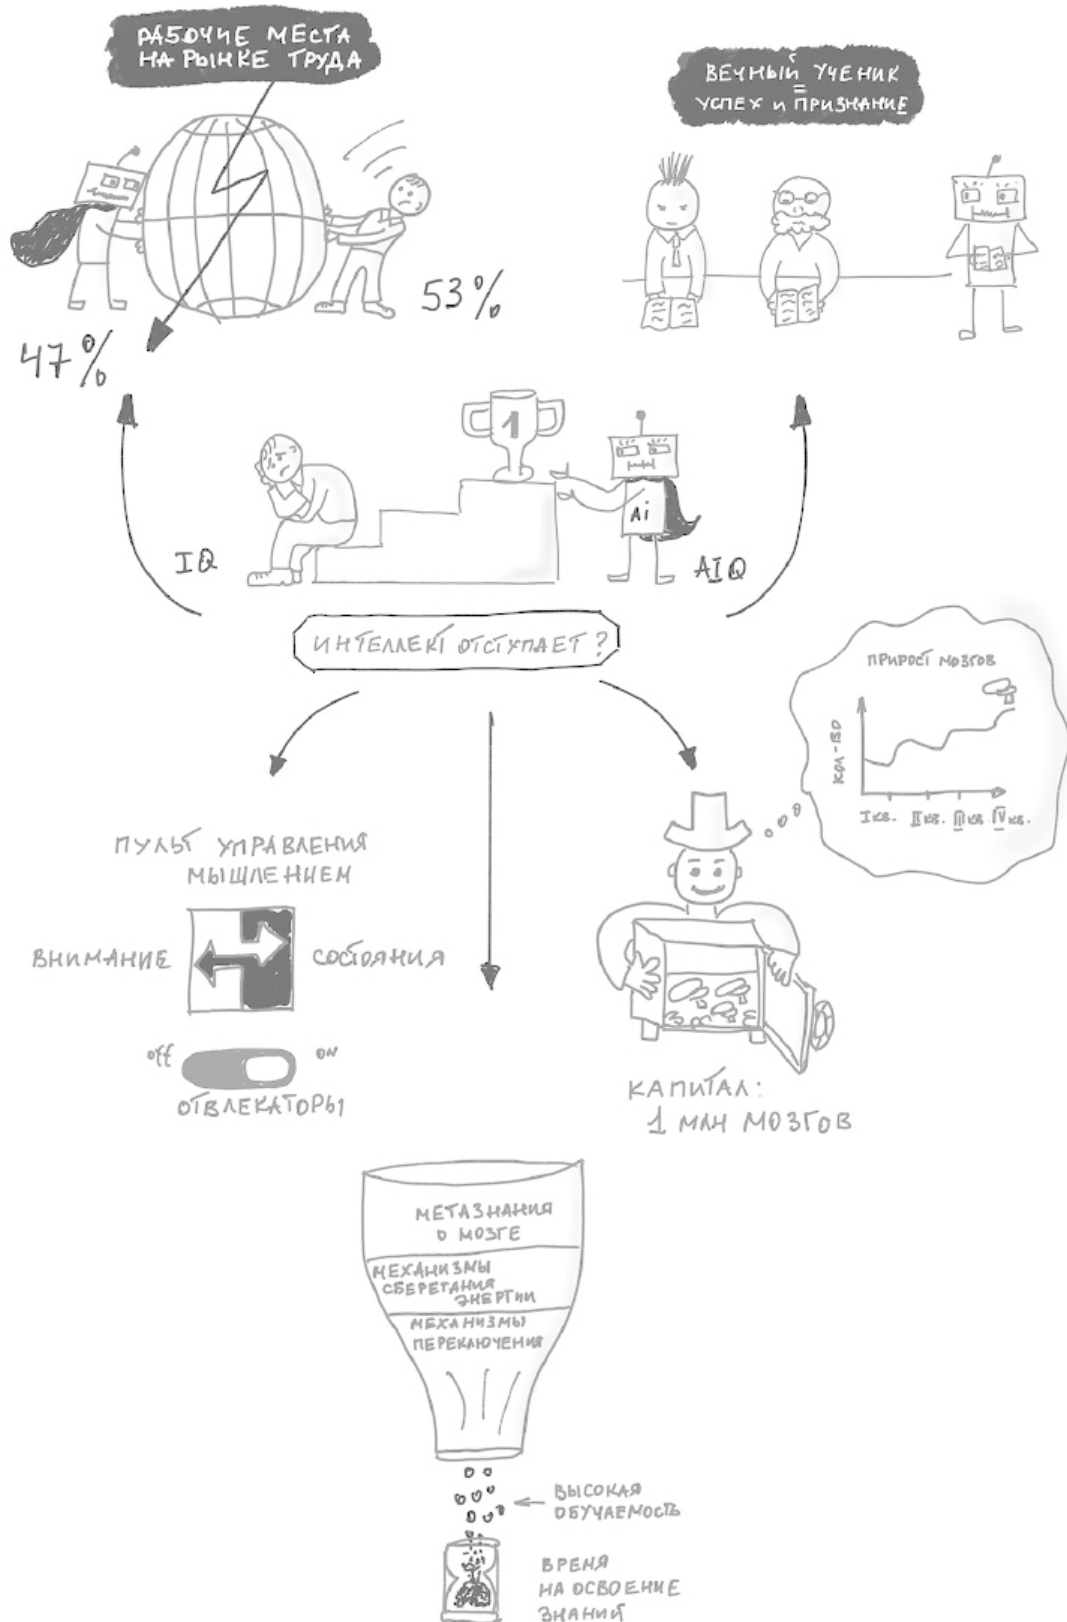 РАБОЧИЕ МЕСТА
НА РЫНКЕ ТРУДА
ВЕЧНЫЙ УЧЕНИК
=
УСПЕХ и ПРИЗНАНИЕ
53%
47%
1
Ai
IQ
AIQ
ИНТЕЛЛЕКТ ОТСТУПАЕТ?
ПРИРОСТ МОЗГОВ
КОЛ-ВО
I КВ. II КВ. III КВ. IV КВ.
ПУЛЬТ УПРАВЛЕНИЯ
МЫШЛЕНИЕМ
ВНИМАНИЕ
СОСТОЯНИЯ
off
ON
ОТВЛЕКАТОРЫ
КАПИТАЛ:
1 МЛН МОЗГОВ
МЕТАЗНАНИЯ
О МОЗГЕ
МЕХАНИЗМЫ
СБЕРЕГАНИЯ
ЭНЕРГИИ
МЕХАНИЗМЫ
ПЕРЕКЛЮЧЕНИЯ
ВЫСОКАЯ
ОБУЧАЕМОСТЬ
ВРЕМЯ
НА ОСВОЕНИЕ
ЗНАНИЙ